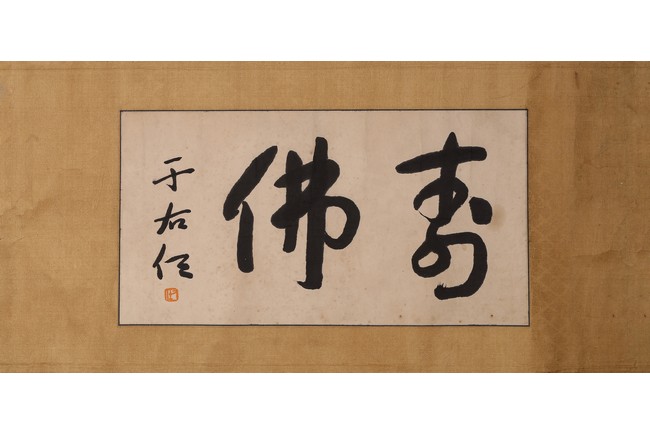 寿佛
于右任